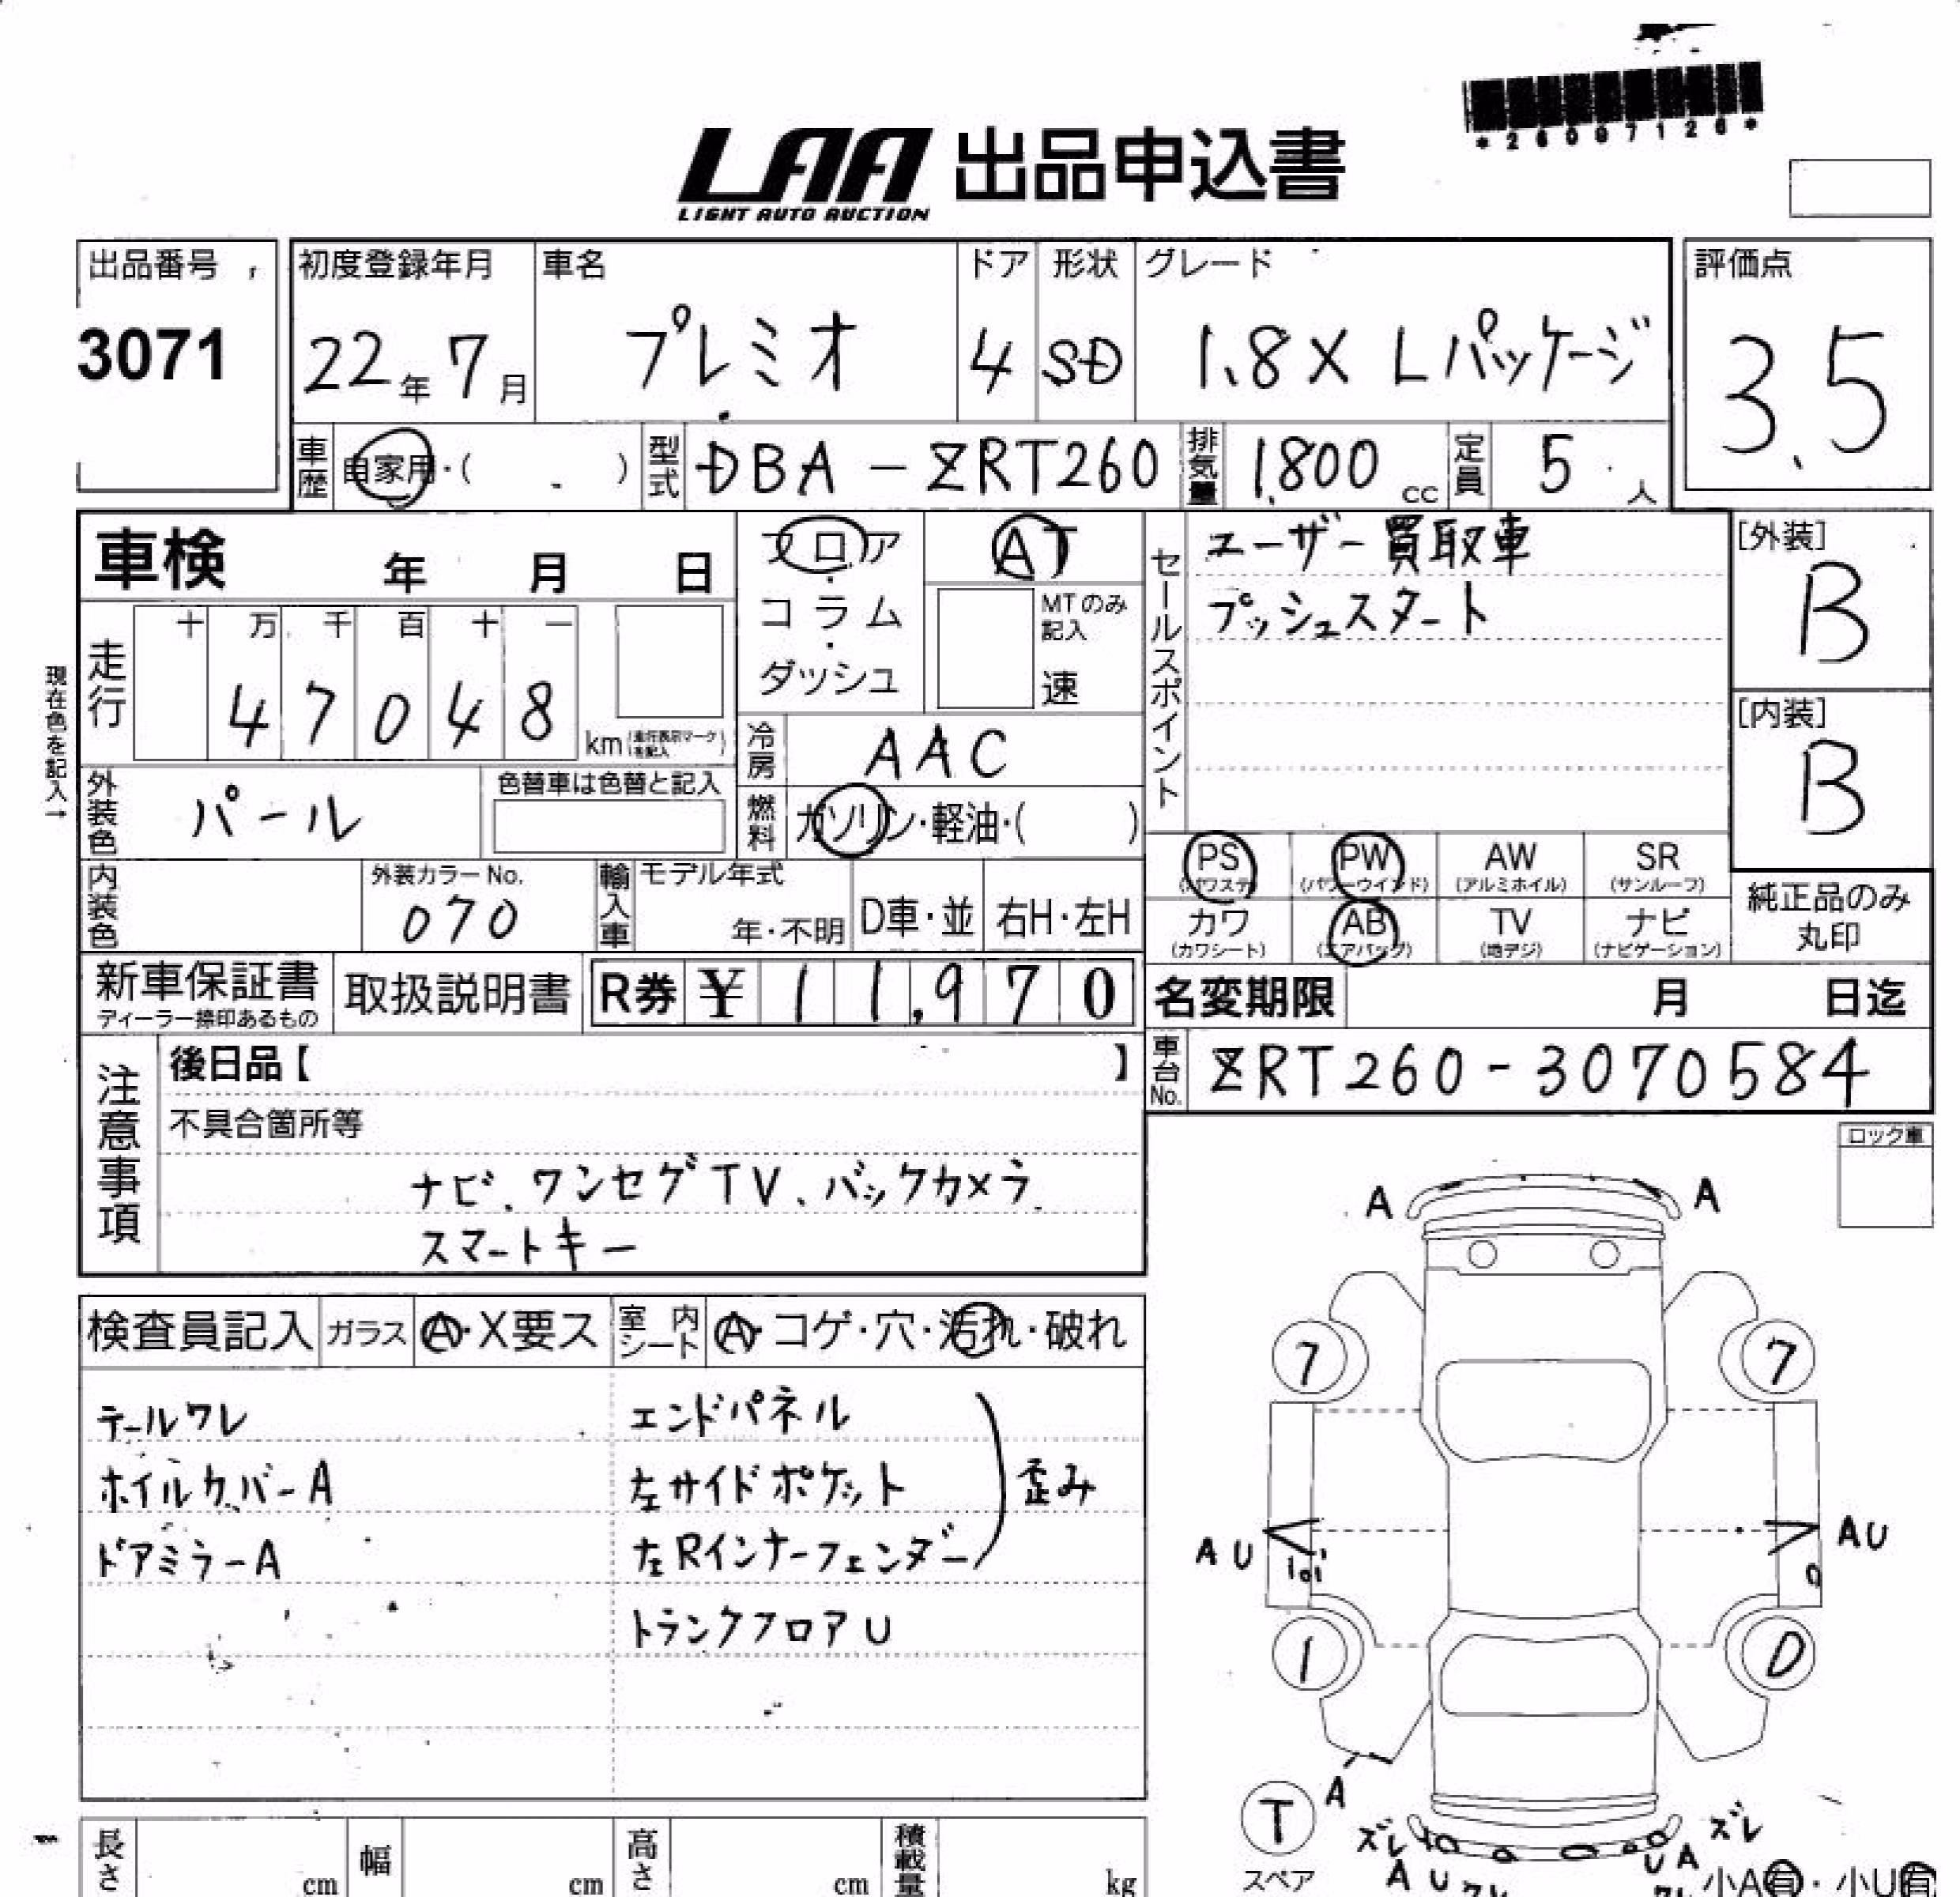 *26007126*
LAA 出品申込書
LIGHT AUTO AUCTION
出品番号 初度登録年月 車名 ドア 形状 グレード 評価点
3071 22年 7月 プレミオ 4 SD 1.8X Lパッケージ 3.5
車歴 自家用・( ) 型式 DBA-ZRT260 排気量 1,800 cc 定員 5 人
車検 年 月 日 フロア・コラム・ダッシュ AT
MTのみ記入 速
セールスポイント
ユーザー買取車
プッシュスタート
[外装]
B
[内装]
B
現在色を記入→
走行 十 万 千 百 十 一
4 7 0 4 8 km (走行表示マークを記入)
冷房 AAC
外装色 パール 色替車は色替と記入
燃料 ガソリン・軽油・( )
PS (パワステ) PW (パワーウインド) AW (アルミホイル) SR (サンルーフ)
カワ (カワシート) AB (エアバッグ) TV (地デジ) ナビ (ナビゲーション)
純正品のみ
丸印
内装色 外装カラーNo. 070 輸入車 モデル年式 年・不明 D車・並 右H・左H
新車保証書 取扱説明書 R券 ¥ 11,970
ディーラー捺印あるもの
名変期限 月 日迄
車台No. ZRT260-3070584
注意事項
後日品【 】
不具合箇所等
ナビ、ワンセグTV、バックカメラ
スマートキー
ロック車
検査員記入 ガラス A・X要ス 室内シート A・コゲ・穴・汚れ・破れ
テールワレ エンドパネル
ホイルカバーA 左サイドポケット 歪み
ドアミラーA 左Rインナーフェンダー
トランクフロアU
A A
7 7
AU AU
1 0
A
T
スペア
ズレ ズレ
AU UA
小A有・小U有
長さ cm 幅 cm 高さ cm 積載量 kg